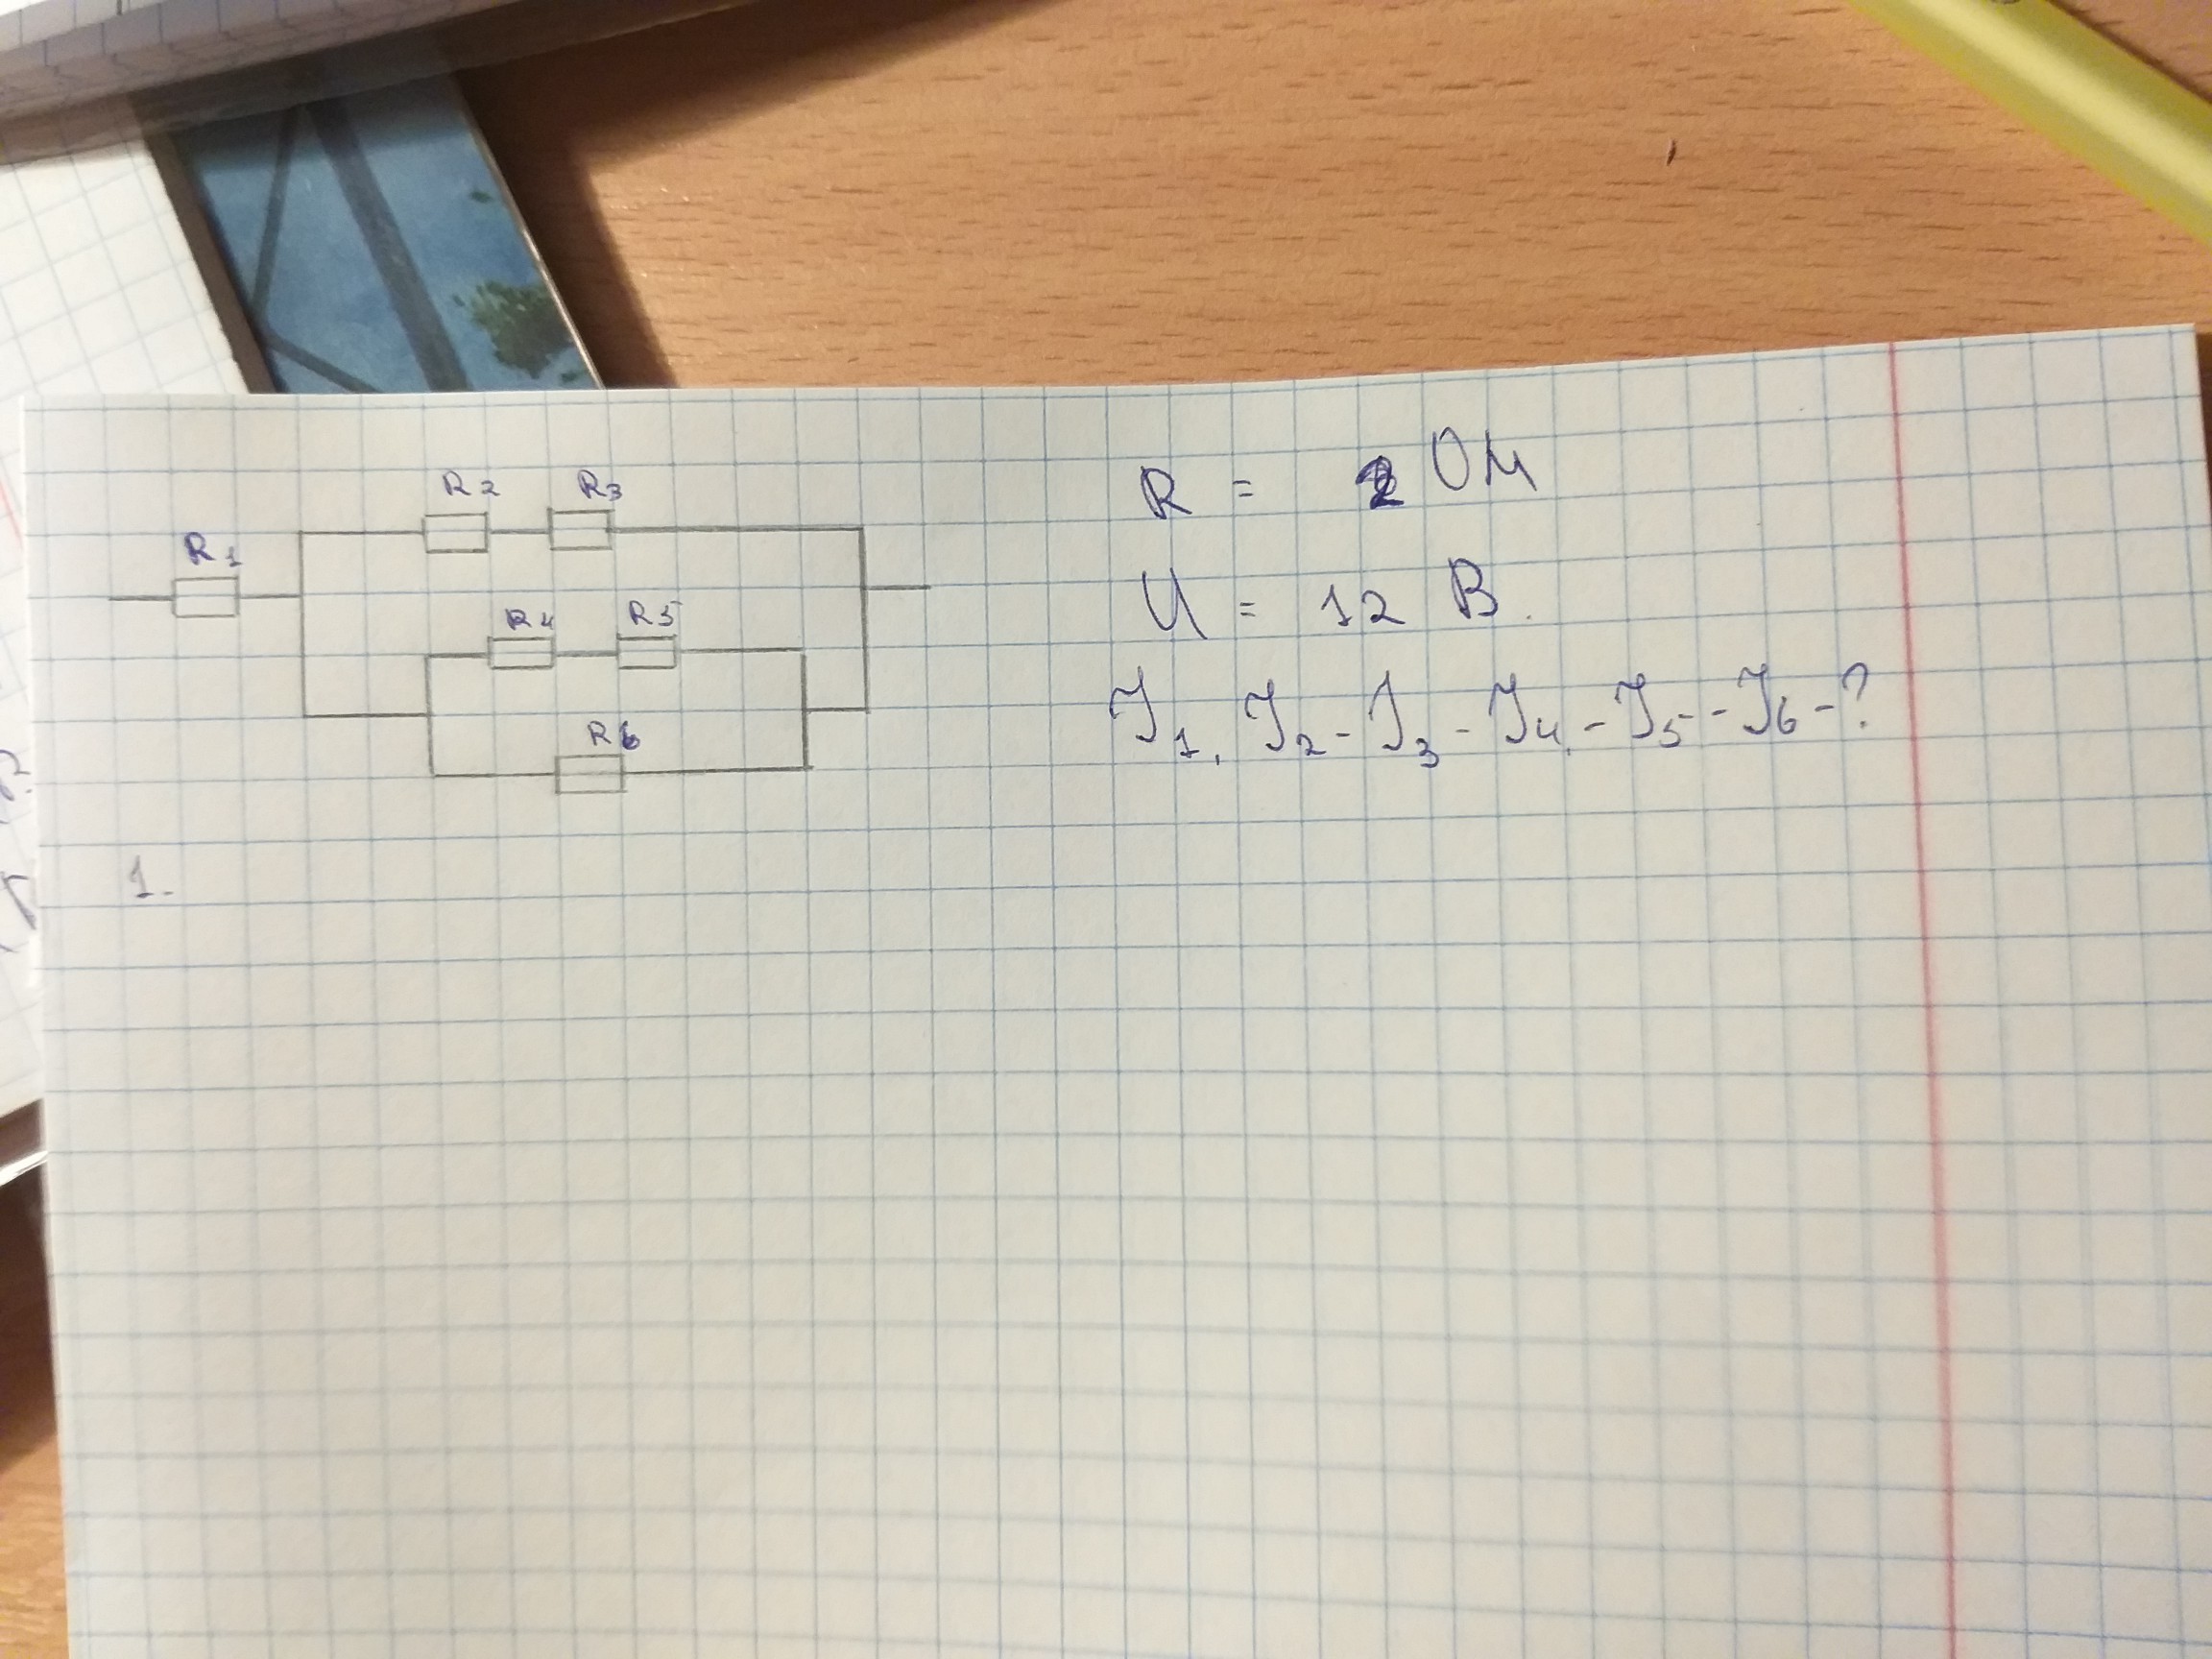 R1
R2 R3
R4 R5
R6
R = 2 Ом
U = 12 В.
I1, I2 - I3 - I4 - I5 - I6 - ?
1.